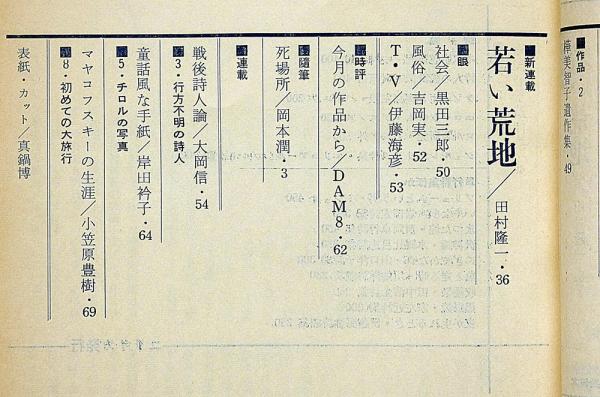 ■作品・2
樺美智子遺作集・49
■新連載
若い荒地／田村隆一・36
■眼
社会／黒田三郎・50
風俗／吉岡実・52
T・V／伊藤海彦・53
■時評
今月の作品から／DAM8・62
■随筆
死場所／岡本潤・3
■連載
戦後詩人論／大岡信・54
3・行方不明の詩人
童話風な手紙／岸田衿子・64
5・チロルの写真
マヤコフスキーの生涯／小笠原豊樹・69
8・初めての大旅行
表紙・カット／真鍋博